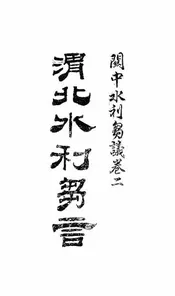 關中水利芻議卷二
渭北水利芻言